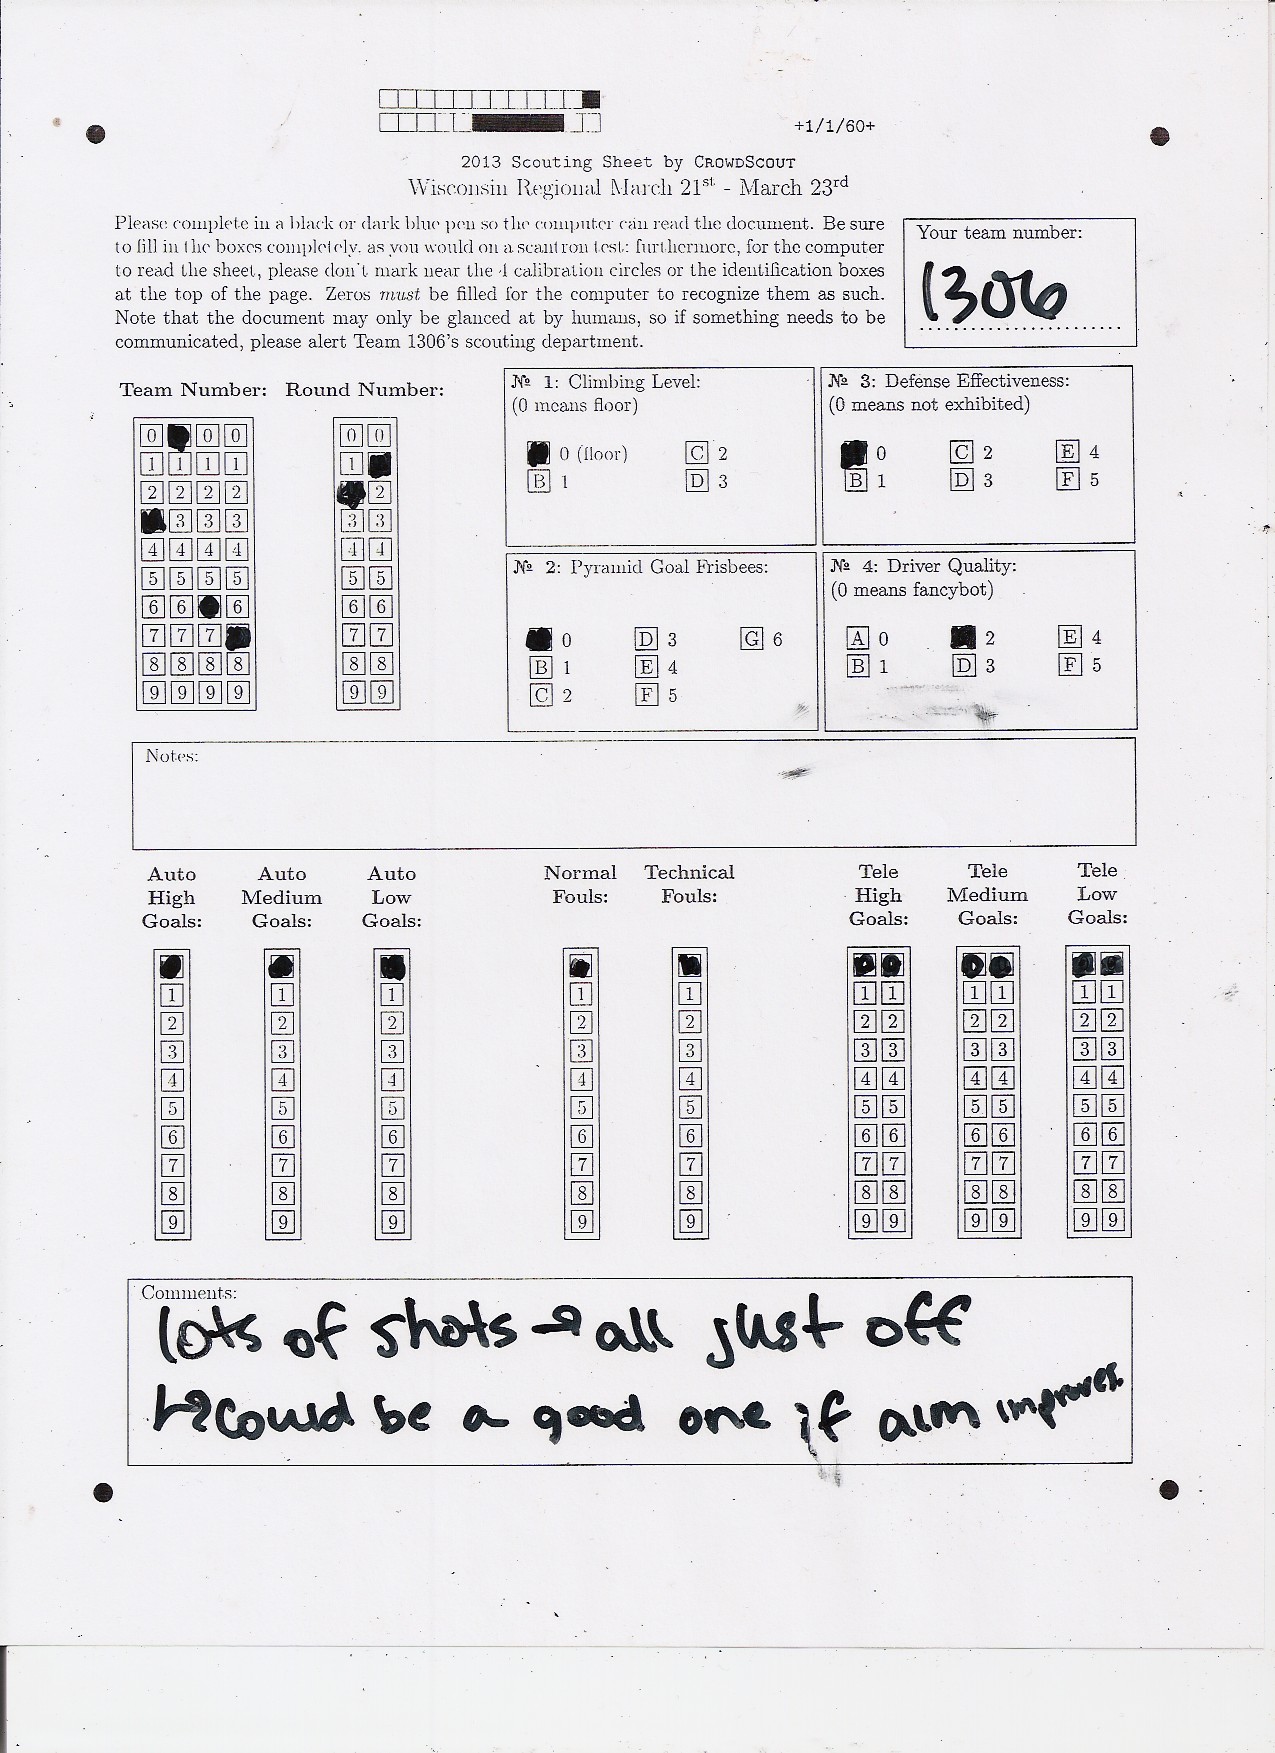 +1/1/60+
2013 Scouting Sheet by CROWDSCOUT
Wisconsin Regional March 21st - March 23rd
Please complete in a black or dark blue pen so the computer can read the document. Be sure
to fill in the boxes completely, as you would on a scantron test; furthermore, for the computer
to read the sheet, please don't mark near the 4 calibration circles or the identification boxes
at the top of the page. Zeros must be filled for the computer to recognize them as such.
Note that the document may only be glanced at by humans, so if something needs to be
communicated, please alert Team 1306's scouting department.
Your team number:
1306
Team Number: Round Number:
0 0 0 0 0
1 1 1 1 1
2 2 2 2 2
3 3 3 3 3
4 4 4 4 4 4
5 5 5 5 5 5
6 6 6 6 6
7 7 7 7 7
8 8 8 8 8 8
9 9 9 9 9 9
№ 1: Climbing Level:
(0 means floor)
0 (floor) C 2
B 1 D 3
№ 3: Defense Effectiveness:
(0 means not exhibited)
0 C 2 E 4
B 1 D 3 F 5
№ 2: Pyramid Goal Frisbees:
0 D 3 G 6
B 1 E 4
C 2 F 5
№ 4: Driver Quality:
(0 means fancybot)
A 0 2 E 4
B 1 D 3 F 5
Notes:
Auto High Goals: Auto Medium Goals: Auto Low Goals: Normal Fouls: Technical Fouls: Tele High Goals: Tele Medium Goals: Tele Low Goals:
1 1 1 1 1 1 1 1 1 1 1
2 2 2 2 2 2 2 2 2 2 2
3 3 3 3 3 3 3 3 3 3 3
4 4 4 4 4 4 4 4 4 4 4
5 5 5 5 5 5 5 5 5 5 5
6 6 6 6 6 6 6 6 6 6 6
7 7 7 7 7 7 7 7 7 7 7
8 8 8 8 8 8 8 8 8 8 8
9 9 9 9 9 9 9 9 9 9 9
Comments:
lots of shots → all just off
↳ could be a good one if aim improves.